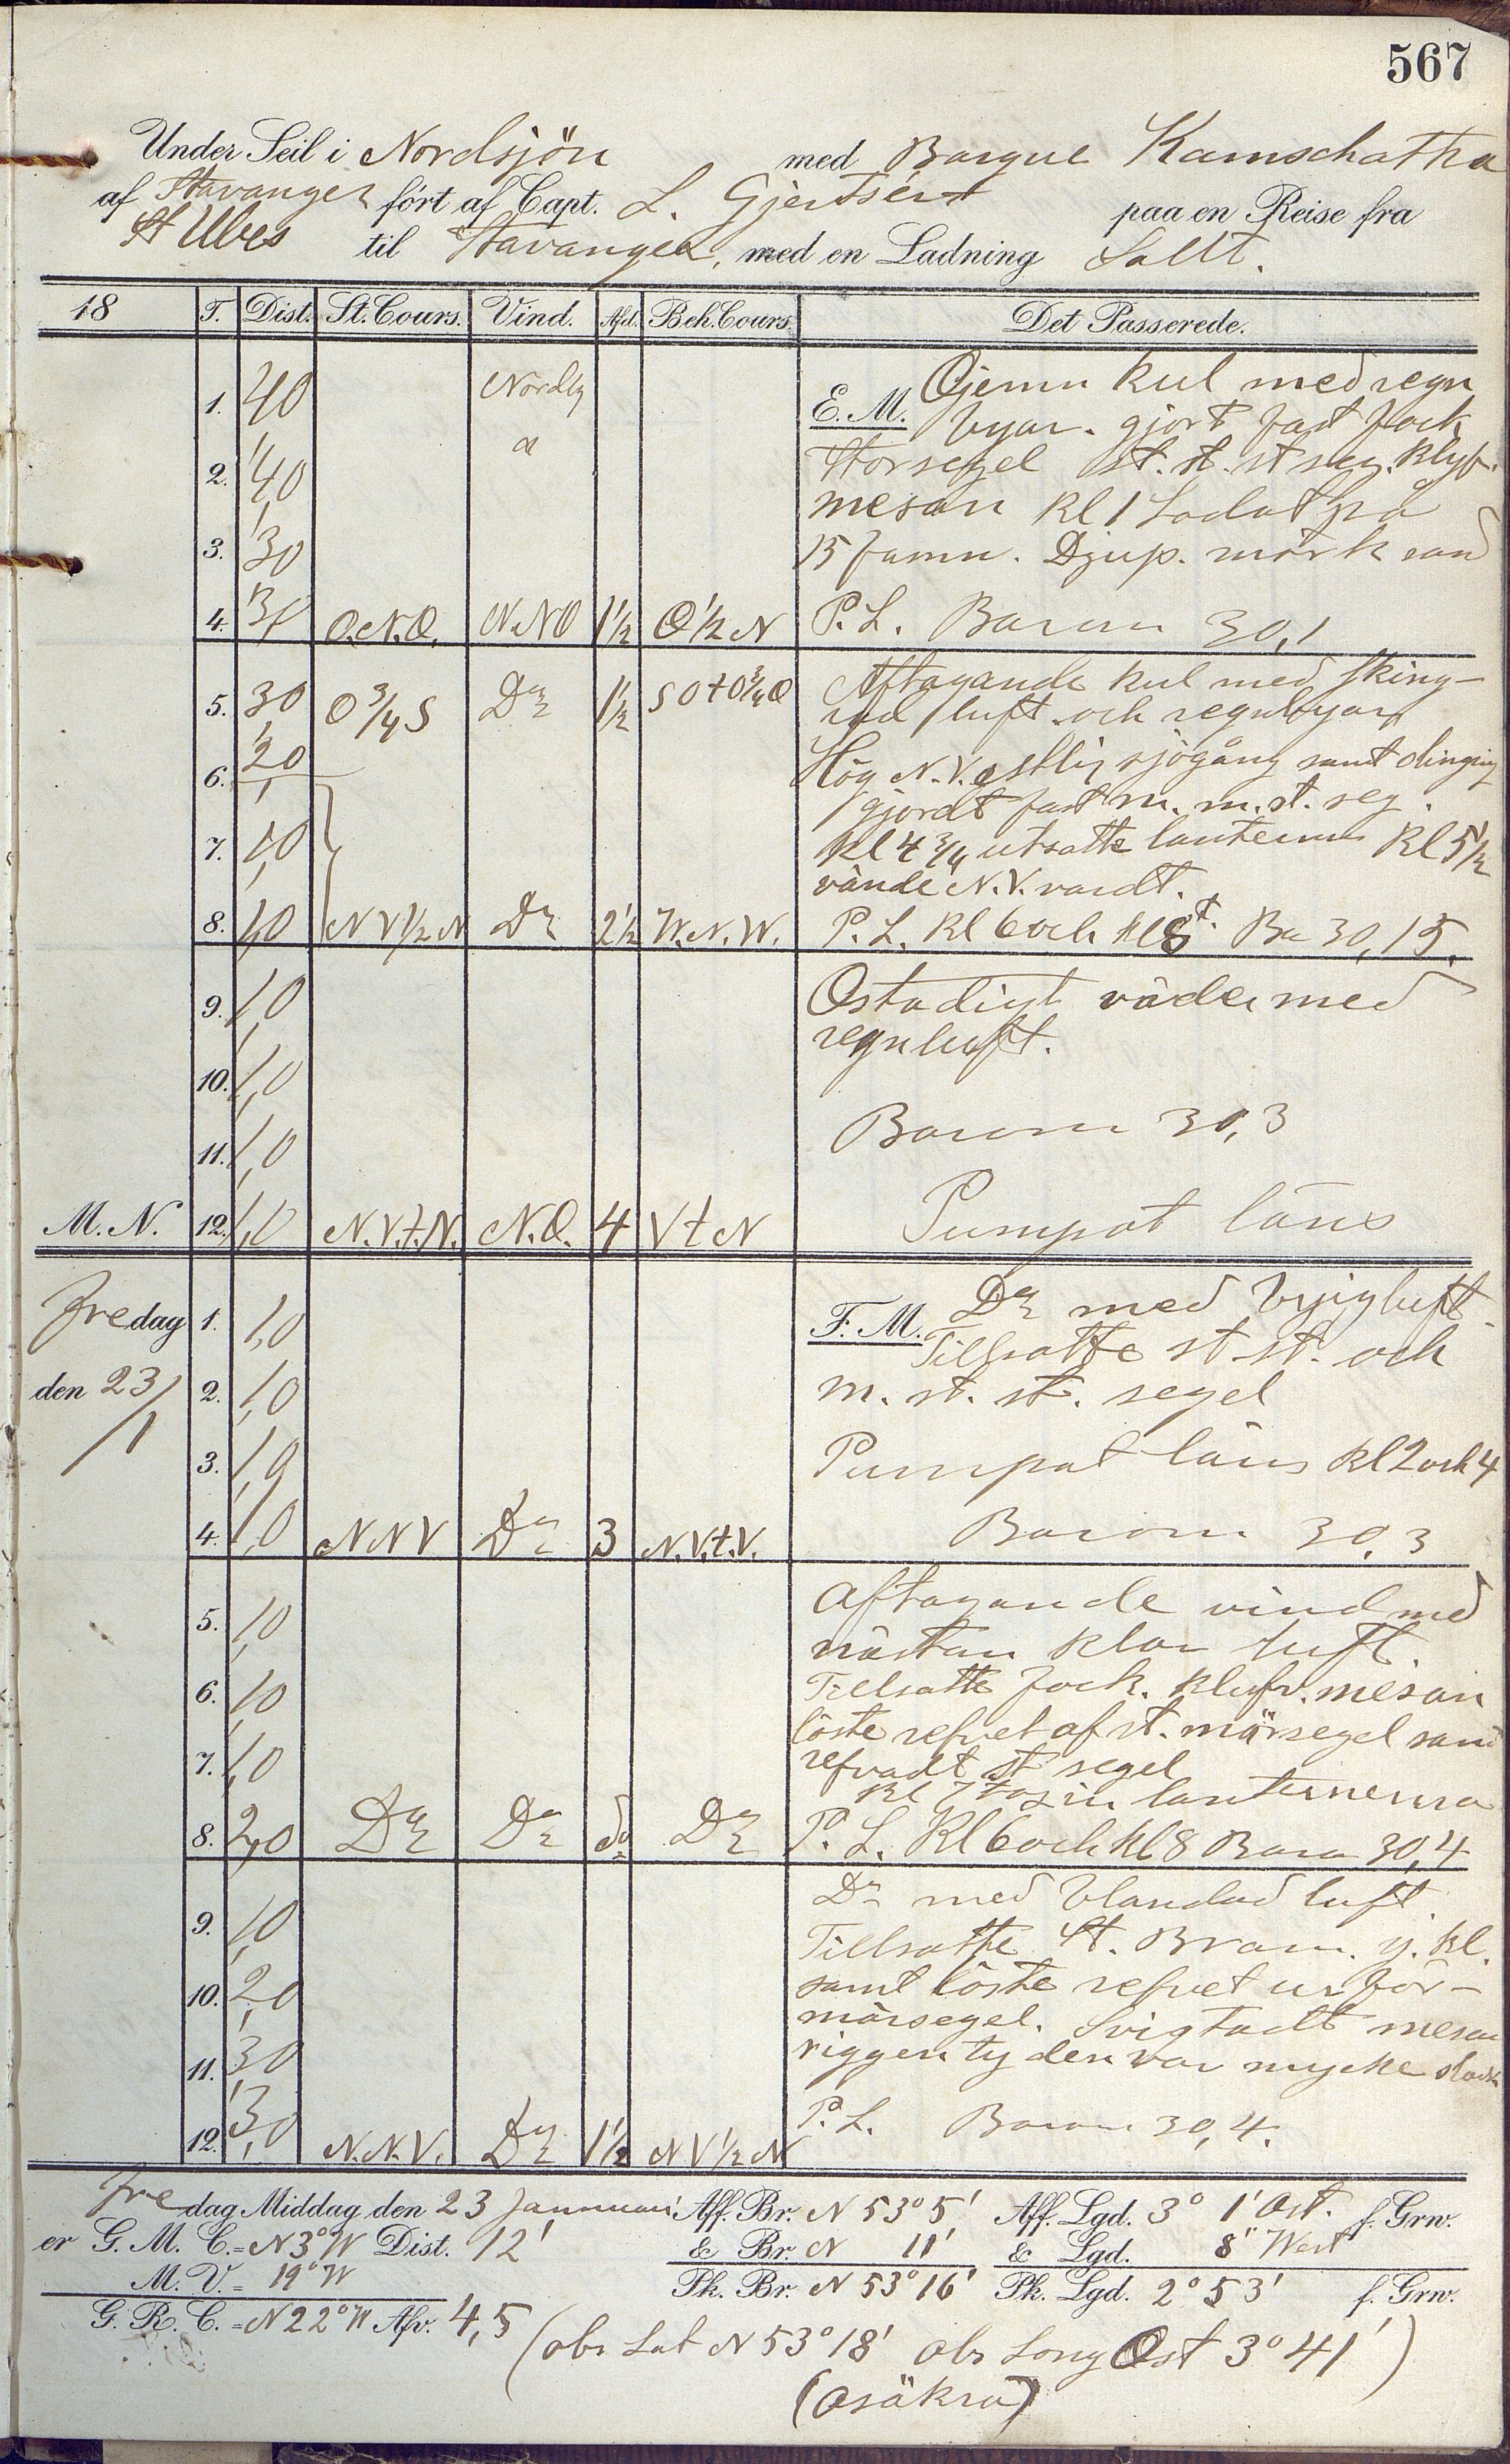 567
Under Seil i Nordsjön med Barque Kamschatka
af Stavanger fört af Capt. L. Gjertsen paa en Reise fra
St Ubes til Stavanger, med en Ladning Sallt.
18 T. Dist. St. Cours. Vind. Afd. Beh. Cours. Det Passerede.
E. M. Ojemn kul med regn
1. 4,0 Nordlig byar. gjort fast fock
2. 4,0 Storsegel st. st. st seg. klyf.
mesan kl 1 Lodat på
3. 3,0 15 famn. Djup. mörk sand
4. 3,0 O.N.O. N.NO 1 1/2 O 1/2 N P. L. Barom 30,1
Aftagande kul med sking-
5. 3,0 O 3/4 S Do 1 1/2 SOtO 3/4 O rad luft och regnbyar
6. 2,0 Hög N.V.estlig sjögång samt dinging
gjordt fast m. m. st. seg.
7. 1,0 kl 4 3/4 utsatte lanternor Kl 5 1/2
vände N.V. vardt.
8. 1,0 N V 1/2 N Do 2 1/2 W.N.W. P. L. kl 6 och kl 8 Ba 30,15.
9. 1,0 Ostadigt väder med
regnluft.
10. 1,0
11. 1,0 Barom 30,3
M. N. 12. 1,0 N.V.t.N. N.O. 4 V t N Pumpat läns
Fredag 1. 1,0 F. M. Do med byigluft
Tillsatte st. st. och
den 23/1 2. 1,0 m. st. st. segel
3. 1,0 Pumpat läns kl 2 och 4
4. 1,0 N N V Do 3 N.V.t.V. Barom 30,3
Aftagande vind med
5. 1,0 nästan klar luft.
6. 1,0 Tillsatte fock. klyfv. mesan
löste refvet af st. märsegel samt
7. 1,0 refvadt st segel
kl 7 tog in lanternerna
8. 2,0 Do Do do Do P. L. Kl 6 och kl 8 Baro 30,4
Do med blandad luft
9. 1,0 Tillsatte St. Bram. y. kl.
10. 2,0 samt löste refvet ur för-
märsegel. Svigtadt mesan
11. 3,0 riggen ty den var mycke slack
12. 3,0 N.N.V. Do 1 1/2 N V 1/2 N P. L. Barom 30,4.
Fredag Middag den 23 Januari Aff. Br. N 53° 5' Aff. Lgd. 3° 1' Ost. f. Grw.
er G. M. C. = N 3° W Dist. 12' & Br. N 11' & Lgd. 8" West
M. V. = 19° W Pk. Br. N 53° 16' Pk. Lgd. 2° 53' f. Grw.
G. R. C. = N 22° W Afv. 4,5
(obs Lat N 53° 18' obs Long Ost 3° 41')
(osäkra)